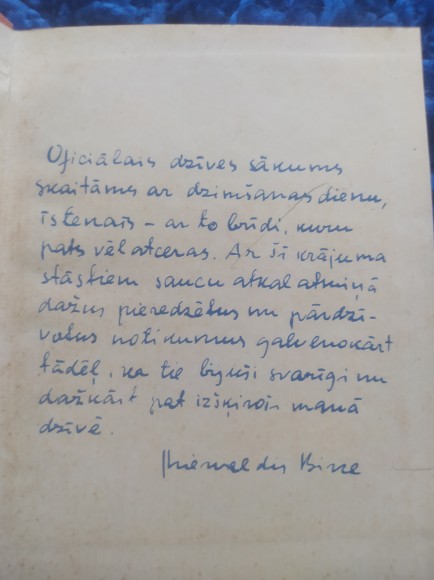 Oficiālais dzīves sākums
skaitāms ar dzimšanas dienu,
īstenais – ar to brīdi, kuru
pats vēl atceras. Ar šī krājuma
stāstiem saucu atkal atmiņā
dažus pieredzētus un pārdzī-
votus notikumus galvenokārt
tādēļ, ka tie bijuši svarīgi un
dažkārt pat izšķiroši manā
dzīvē.
Miervaldis Birze